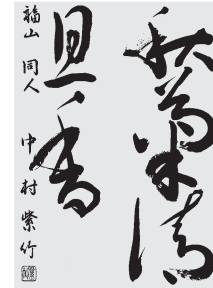 秋清
且香
福山 同人 中村紫竹